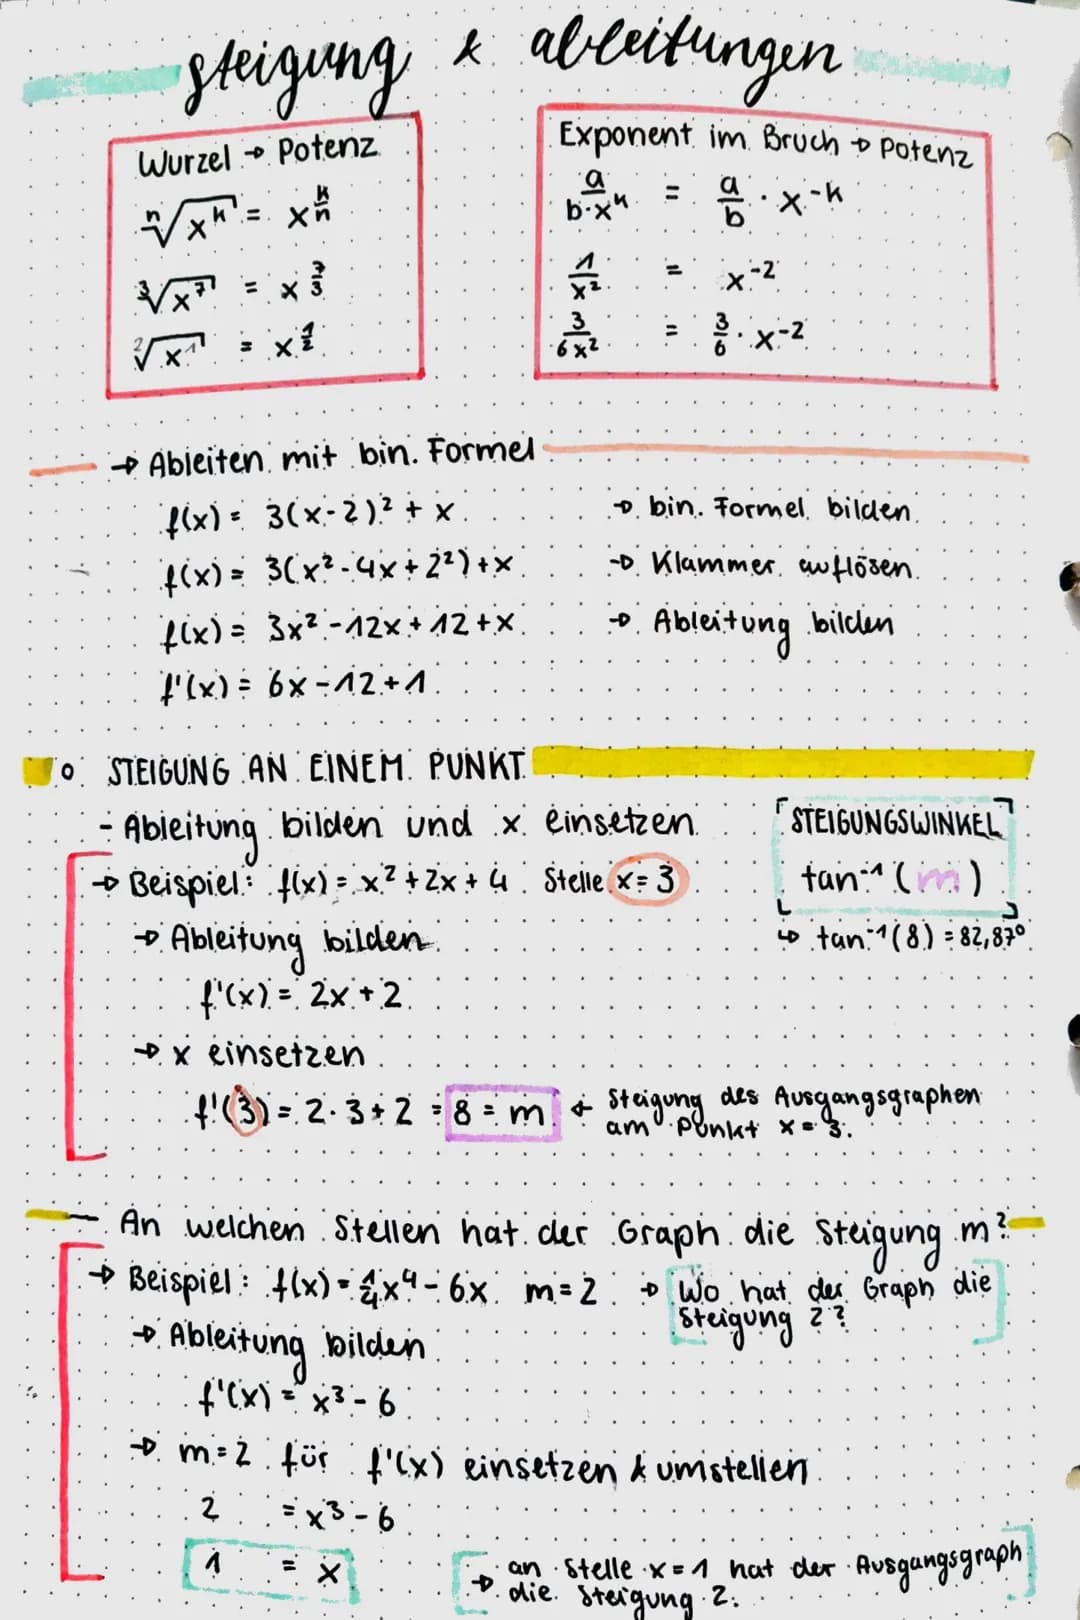 steigung & ableitungen
Wurzel → Potenz
ⁿ√xᵏ = x^(k/n)
³√x⁷ = x^(7/3)
²√x¹ = x^(1/2)
Exponent im Bruch → Potenz
a/(b·xᵏ) = a/b · x⁻ᵏ
1/x² = x⁻²
3/(6x²) = 3/6 · x⁻²
→ Ableiten mit bin. Formel
f(x) = 3(x-2)² + x → bin. Formel bilden
f(x) = 3(x²-4x+2²)+x → Klammer auflösen
f(x) = 3x²-12x+12+x → Ableitung bilden
f'(x) = 6x-12+1
STEIGUNG AN EINEM PUNKT
- Ableitung bilden und x einsetzen
→ Beispiel: f(x) = x²+2x+4 Stelle x=3
→ Ableitung bilden
f'(x) = 2x+2
→ x einsetzen
f'(3) = 2·3+2 = 8 = m ← Steigung des Ausgangsgraphen
am Punkt x=3.
STEIGUNGSWINKEL
tan⁻¹(m)
↳ tan⁻¹(8) = 82,87°
An welchen Stellen hat der Graph die Steigung m?
→ Beispiel: f(x) = 1/4x⁴-6x m=2 → Wo hat der Graph die
Steigung 2?
→ Ableitung bilden
f'(x) = x³-6
→ m=2 für f'(x) einsetzen & umstellen
2 = x³-6
1 = x
→ an Stelle x=1 hat der Ausgangsgraph
die Steigung 2.